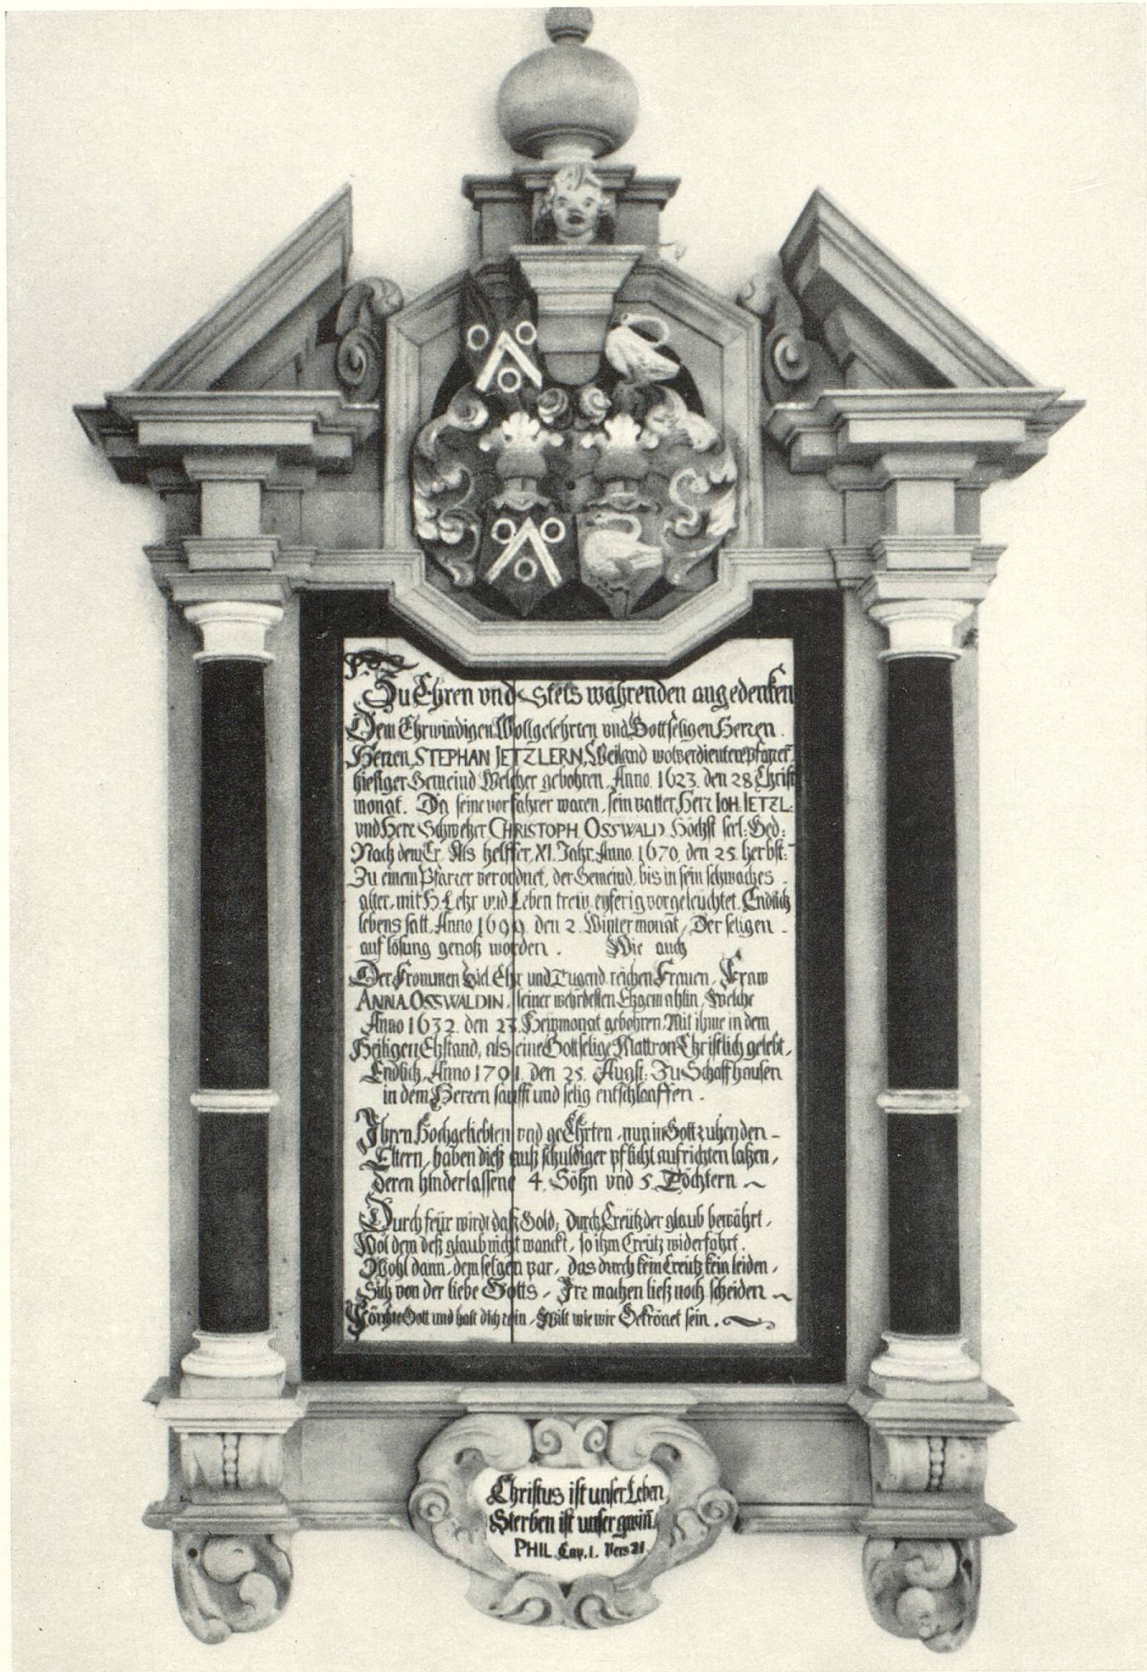 Zu Ehren vnd stets währenden angedencken
Dem Ehrwürdigen, Wollgelehrten vnd Gottseligen Herren.
Herren, STEPHAN IETZLERN, Weiland wolverdienten Pfarrer
hiesiger Gemeind Welcher gebohren, Anno 1623 den 28 Christ
monat. Da seine vorfahrer waren, sein vatter, Herr IOH. IETZL:
vnd Herr Schweher CHRISTOPH OSSWALD Höchst seel: Ged:
Nach dem Er Als helffer XI. Jahr, Anno 1670, den 25. Herbst:
Zu einem Pfarrer verordnet, der Gemeind, bis in sein schwaches
alter, mit H. Lehr vnd Leben trew, eyferig vorgeleuchtet. Endlich
lebens satt, Anno 1699 den 2 Wintermonat, Der seligen
auflösung genoß worden. Wie auch
Der Frommen Viel Ehr und Tugend reichen Frauen, Fraw
ANNA OSSWALDIN, seiner wehrdesten Ehgemahlin, Welche
Anno 1632 den 23. Heümonat gebohren, Mit ihme in dem
Heiligen Ehstand, als eine Gottselige Mattron Christlich gelebt,
Endlich, Anno 1701. den 25. Augst: Zu Schaffhausen
in dem Herren saufft und selig entschlaffen.
Ihren Hochgeliebten vnd geEhrten, nun in Gott ruhenden
Eltern, haben dieß auß schuldiger pflicht aufrichten laßen,
deren hinderlassene 4. Söhn vnd 5. Töchtern
Durch feür wirdt daß Gold, Durch Creütz der glaub bewährt,
Wol dem deß glaub nicht wanckt, so ihm Creütz widerfahrt.
Wohl dann, dem selgen par, das durch kein Creütz kein leiden,
Sich von der liebe Gotts, Irr machen ließ noch scheiden
Förchte Gott und halt dich rein, Wilt wie wir Gekrönet sein.
Christus ist unser Leben,
Sterben ist unser gwiñ,
PHIL. Cap. 1. Vers 21